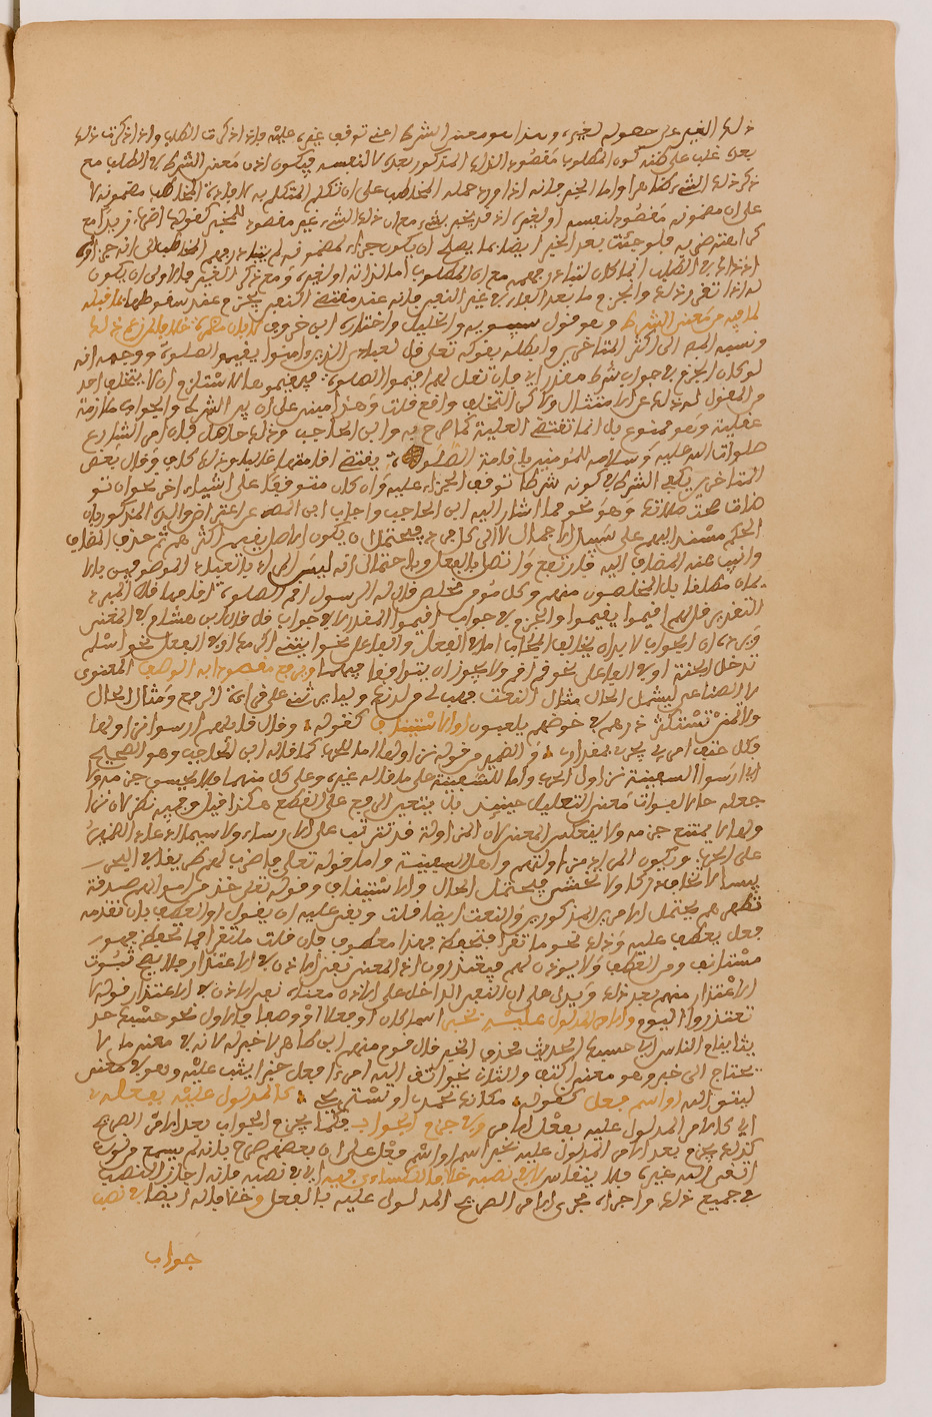 ذلك الغير على حصوله لغيره وهذا هو معنى الشرط اعنى توقف غيره عليه فاذا ذكرت الطلب واذا ذكرت ذلك
بعده غلب على ظنه كون المطلوب مقصودا لذلك المذكور بعده لا لنفسه فيكون اذن معنى الشرط في الطلب مع
ذكر ذلك الشيء ظاهرا واما الخبر فانه اذا ورد حمله المخاطب على ان تكلم المتكلم به لافادة المخاطب مضمونه لا
على ان مضمونه مقصود لنفسه او لغيره اذ قد يخبر بشيء مع ان ذلك الشيء غير مقصود للمخبر كقولك
فلو جئت بعد الخبر ايضا بما يصلح ان يكون جزاء لمضمونه لم يتبادر الى فهم المخاطب انه جزاؤه
اذ ذلك في الطلب انما كان لتبادر فهمه مع ان المطلوب اما لذاته او لغيره ومع ذكر الغير فالاولى ان يكون
له اذا تقرر ذلك والجزم ما بعد الفاء في غير النفي فانه عند مقتضى النفي يجزم عند سقوطها بما قبله
لما فيه من معنى الشرط وهو قول سيبويه والخليل واختاره ابن خروف لا بان مضمرة خلافا لمن زعم ذلك
ونسبه المص الى اكثر المتاخرين وابطله بقوله تعلى قل لعبادي الذين ءامنوا يقيموا الصلوة ووجهه انه
لو كان الجزم في جواب شرط مقدر اي فان تقل لهم اقيموا الصلوة يقيموها لا ستلزم ان لا يتخلف احد
من المقول له ذلك عن الامتثال ولكن التخلف واقع قلت وهذا مبني على ان بين الشرط والجواب ملازمة
عقلية وهو ممنوع بل انما تقتضي الغلبة كما صرح به وابن الحاجب وذلك حاصل فان امر الشارع
صلوات الله عليه وسلامه للمؤمنين باقامة الصلوة يقتضى اقامتها غالبا وذلك كاف وقال بعض
المتاخرين يكفى الشرط في كونه شرطا توقف الجزاء عليه وان كان متوقفا على اشياء اخر نحو ان تو
ضات صحت صلاتك وهو نحو مما اشار اليه ابن الحاجب واجاب ابن المص عن اعتراض والده المذكور بان
الحكم مسند اليهم على سبيل الاجمال لا الى كل فرد فيحتمل ان يكون الاصل يقم اكثرهم ثم حذف المضاف
وانيب عنه المضاف اليه فارتفع واتصل بالفعل وباحتمال انه ليس المراد بالعباد الموصوفين بالا
يمان مطلقا بل المخلصون منهم وكل مؤمن مخلص قال له الرسول اقم الصلوة اقامها وقال المبرد
التقدير قل لهم اقيموا يقيموا والجزم في جواب اقيموا المقدر لا في جواب قل قال ابن هشام في المغني
ويرده ان الجواب لا بد ان يخالف المجاب اما في الفعل والفاعل نحو ايتني اكرمك او في الفعل نحو اسلم
تدخل الجنة او في الفاعل نحو قم اقم ولا يجوز ان يتوافقا فيهما ويرفع مقصودا به الوصف المعنوى
لا الصناعي ليشمل الحال مثال النعت فهب لي من لدنك وليا يرثني على قراءة الرفع ومثال الحال
ولا تمنن تستكثر ذرهم في خوضهم يلعبون او الاستيناف كقوله وقال قايلهم ارسوا نزاولها
فكل حتف امرئ يجرى بمقدار والضمير من قوله نزاولها اما للحرب كما قاله ابن الحاجب وهو الصحيح
اي ارسوا السفينة نزاول الحرب واما للسفينة على ما قاله غيره وعلى كل منهما فلا يحسن جزمه ولا
جعله حالا لفوات معنى التعليل حينئذ بل يتعين الرفع على القطع هكذا قيل وفيه نظر لان نزا
ولها لا يمتنع جزمه ولا يفعكس المعنى لان المزاولة قد تترتب على الارساء ولا سيما اذا عاد الضمير
على الحرب ويكون المراد من اولتهم واهل السفينة واما قوله تعلى فاضرب لهم طريقا في البحر
يبسا لا تخاف دركا ولا تخشى فيحتمل الحال والاستيناف وقوله تعلى خذ من اموالهم صدقة
تطهرهم يحتمل الامرين المذكورين والنعت ايضا قلت وبقى عليه ان يقول او العطف بان تقدمه
فعل يعطف عليه وذلك نحو ما تقرا فتحفظ فهذا معطوف فان قلت ما تقرا فما تحفظ فهو
مستانف ومن العطف ولا يوذن لهم فيعتذرون اذ المعنى نفي الاذن في الاعتذار فلا يصح ثبوت
الاعتذار منهم بعد ذلك ويدل على ان النفي الداخل على الاذن معناه نفي الاذن في الاعتذار قوله لا
تعتذروا اليوم والامر المدلول عليه بخبر اسما كان او فعلا او وصفا فالاول نحو حسبك حد
يثا ينام الناس اي حسبك الحديث محذوف الخبر قال قوم منهم ابن طاهر لا خبر له لانه في معنى ما لا
يحتاج الى خبر وهو معنى اكتف والثاني نحو اتقى الله امرؤ فعل خيرا يثب عليه وهو في معنى
ليتق الله او اسم فعل كقوله مكانك تحمدى او تستريحى كالمدلول عليه بفعله
اي كالامر المدلول عليه بفعل الامر في جزم الجواب فكما يجزم الجواب بعد الامر الصريح
كذلك يجزم بعد الامر المدلول عليه بخبر اسم او اسم فعل على ان بعضهم صرح بانه لم يسمع من قولك
اتقى الله غيره فلا ينقاس لا في نصبه خلافا للكساءى فيه اي في نصبه فانه اجاز النصب
في جميع ذلك واجراه مجرى الامر الصريح المدلول عليه بالفعل وخلافا له ايضا في نصب
جواب